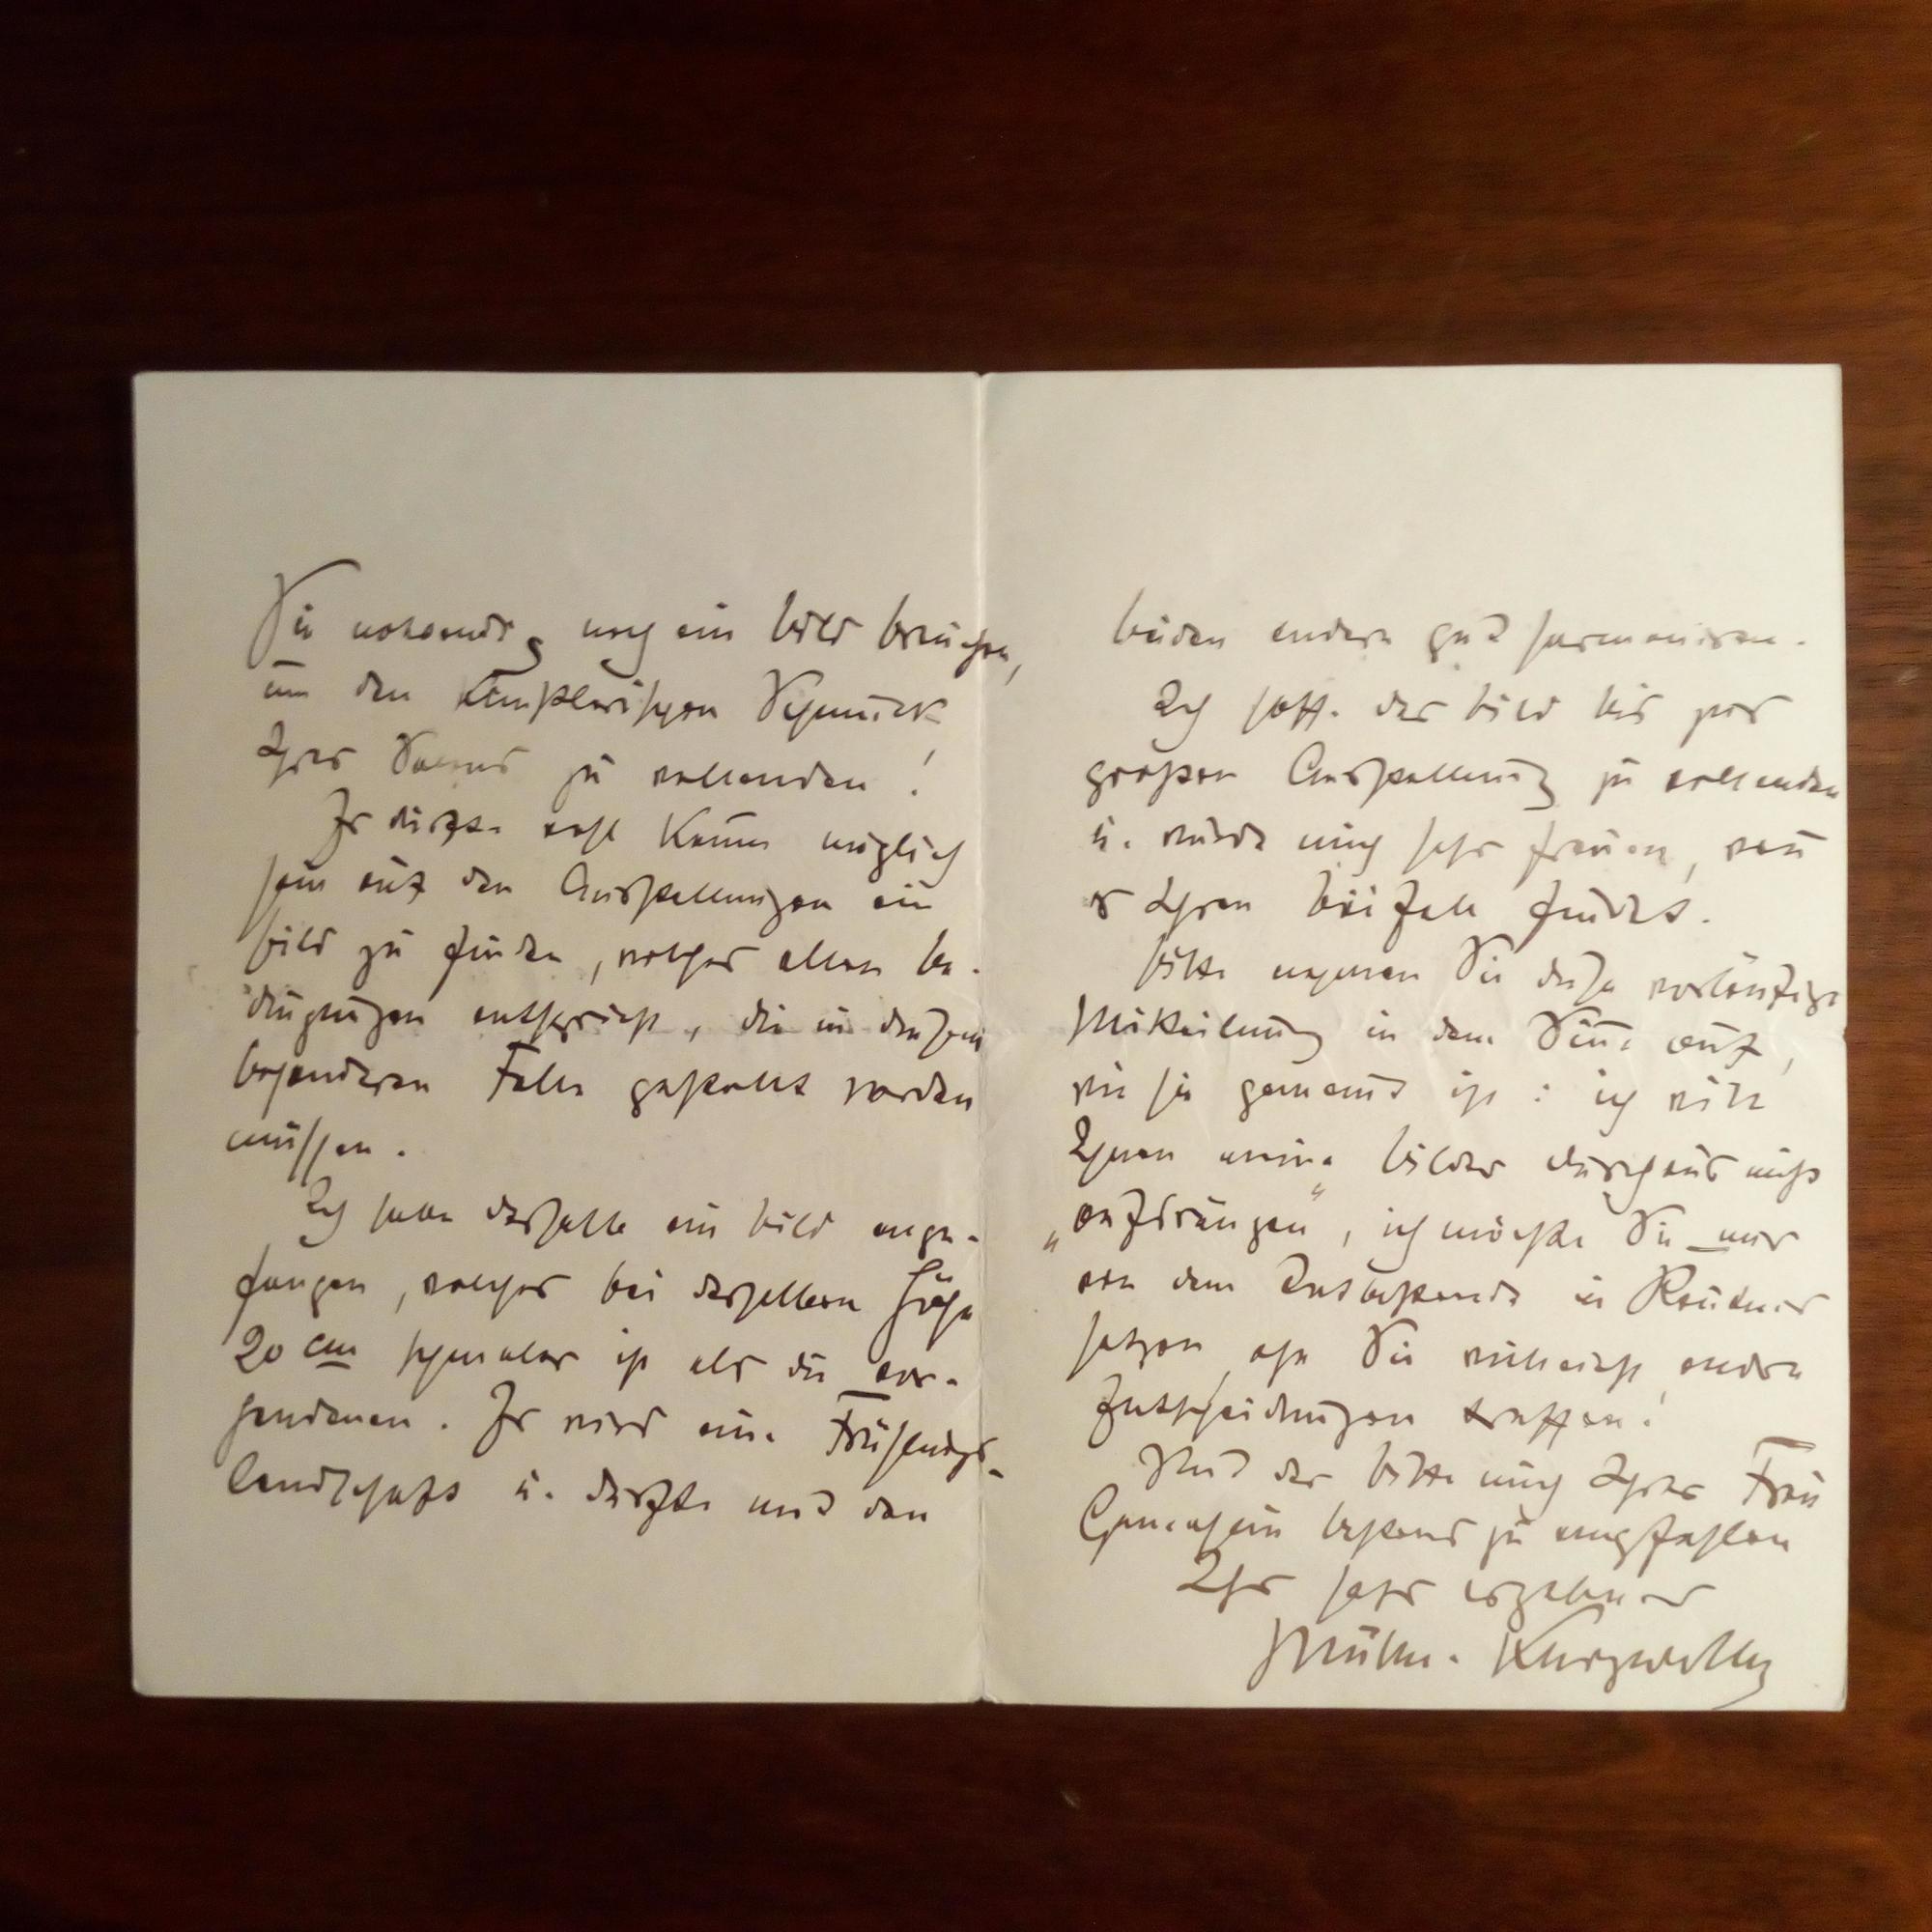 Sie notwendig noch ein Bild brauchen,
um den künstlerischen Schmuck
Ihres Saales zu vollenden!
Es dürfte wohl kaum möglich
sein auf den Ausstellungen ein
Bild zu finden, welches allen Be-
dingungen entspricht, die in diesem
besonderen Falle gestellt werden
müssen.
Ich habe deshalb ein Bild ange-
fangen, welches bei derselben Höhe
20 cm schmaler ist als die vor-
handenen. Es wird eine Frühlings-
landschaft u. dürfte mit den
beiden andern gut harmoniren.
Ich hoffe das Bild bis zur
großen Ausstellung zu vollenden
u. würde mich sehr freuen, wenn
es Ihren Beifall findet.
Bitte nehmen Sie diese vorläufige
Mitteilung in dem Sinne auf,
wie sie gemeint ist: ich will
Ihnen meine Bilder durchaus nicht
„aufdrängen“, ich möchte Sie nur
von dem Entstehenden in Kenntnis
setzen, ehe Sie vielleicht andre
Entscheidungen treffen!
Mit der Bitte mich Ihrer Frau
Gemahlin bestens zu empfehlen
Ihr sehr ergebener
Müller-Kurzwelly